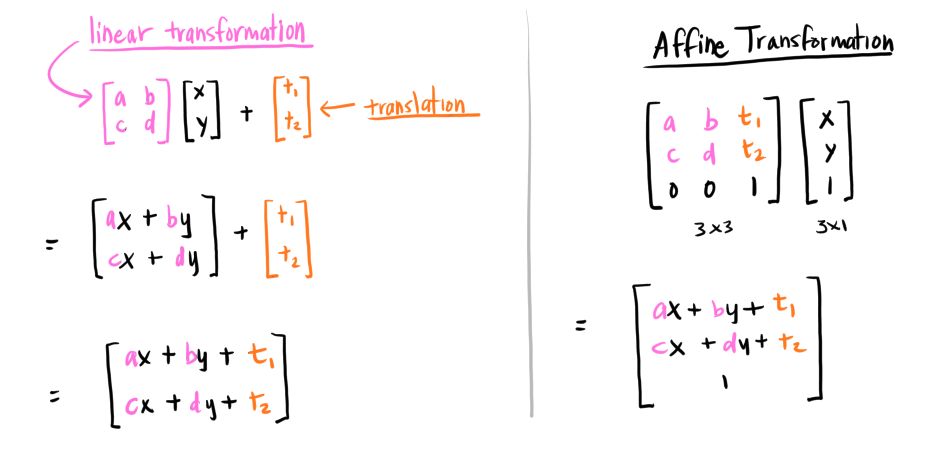 linear transformation
[a b; c d] [x; y] + [t₁; t₂] ← translation
= [ax + by; cx + dy] + [t₁; t₂]
= [ax + by + t₁; cx + dy + t₂]
Affine Transformation
[a b t₁; c d t₂; 0 0 1] [x; y; 1]
3×3 3×1
= [ax + by + t₁; cx + dy + t₂; 1]